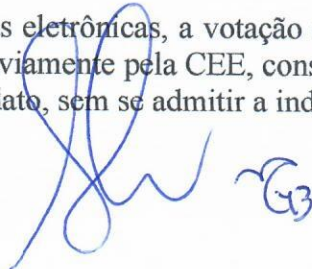 s eletrônicas, a votação
viamente pela CEE, cons
lato, sem se admitir a ind